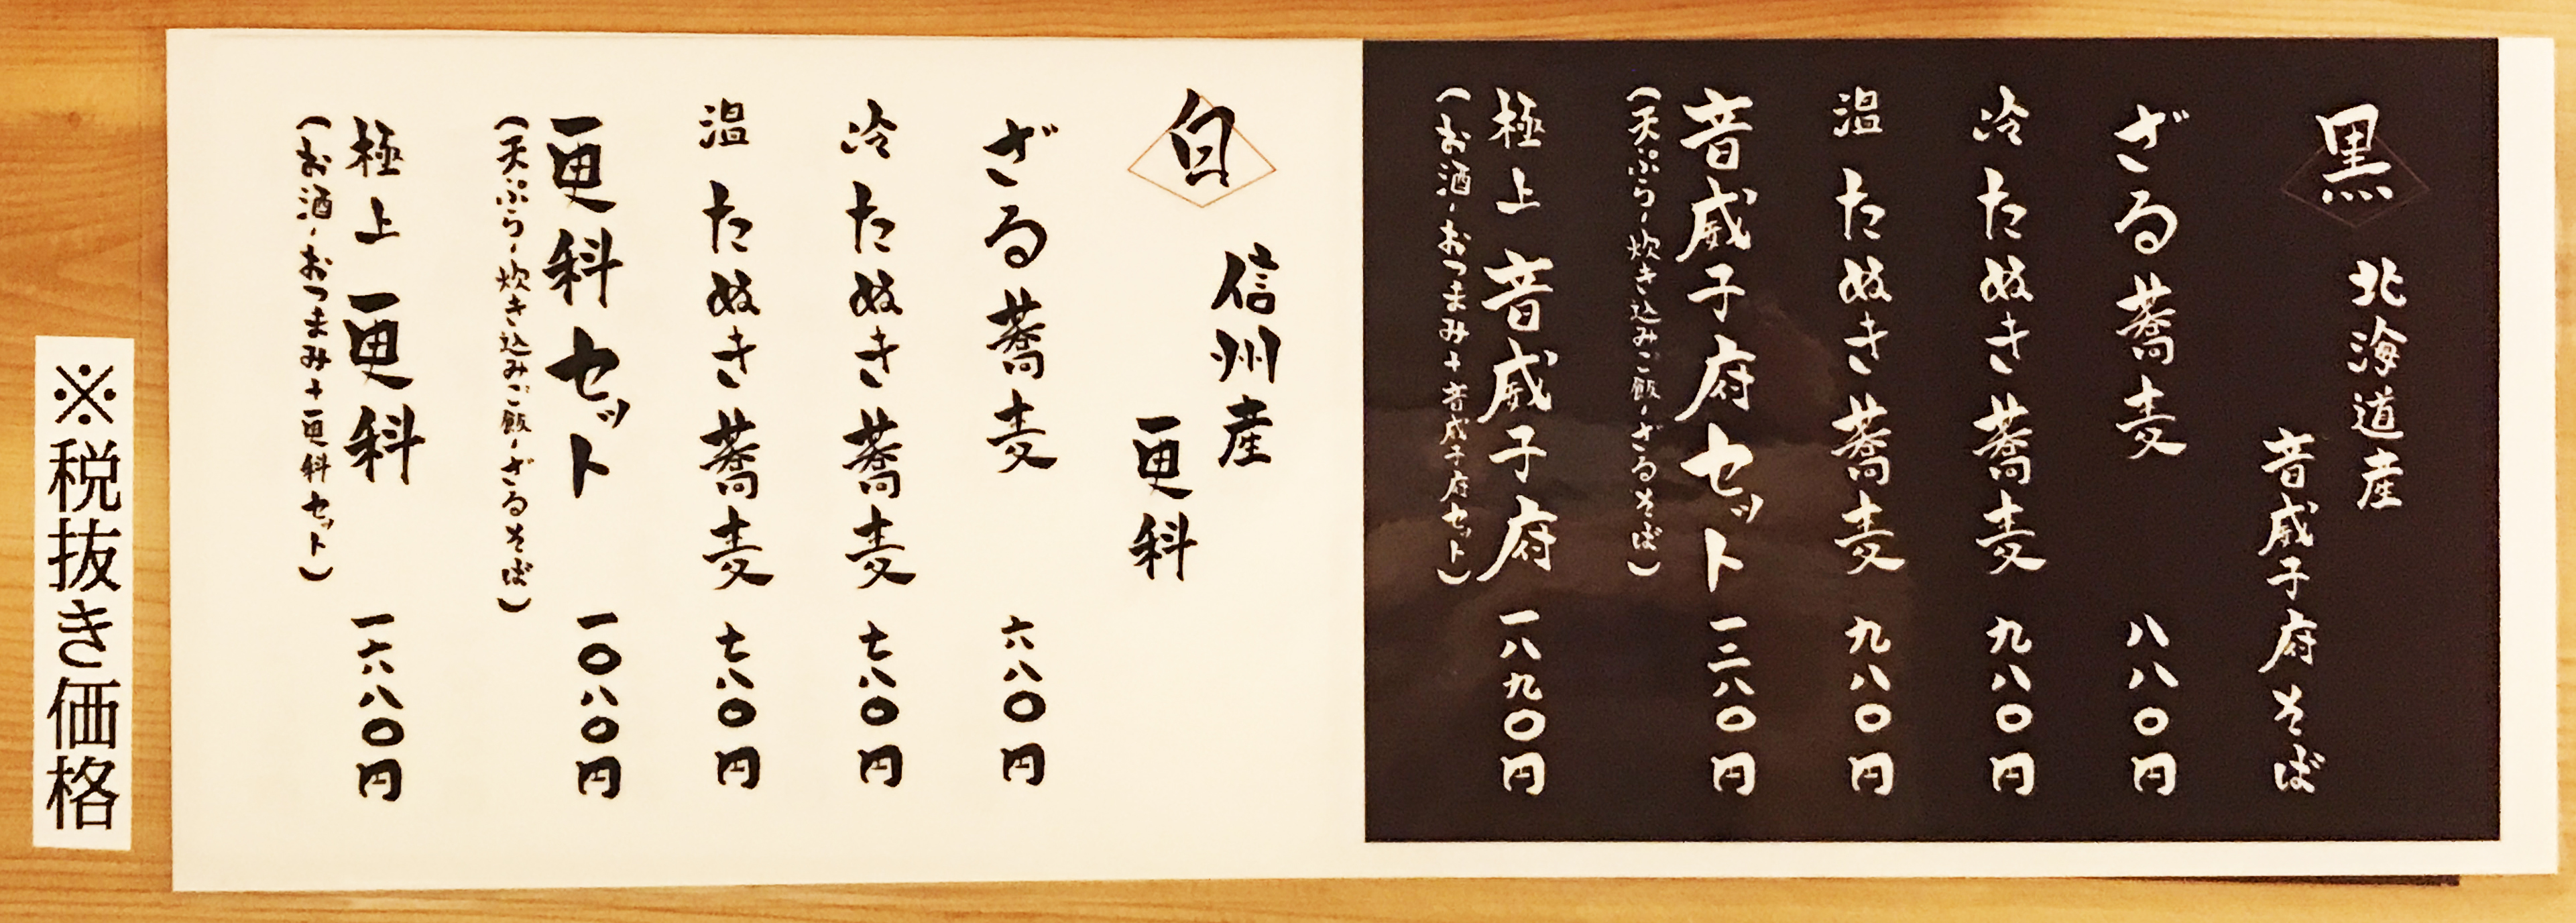 黒
北海道産
音威子府そば
ざる蕎麦 八八〇円
冷 たぬき蕎麦 九八〇円
温 たぬき蕎麦 九八〇円
音威子府セット 一三八〇円
(天ぷら、炊き込みご飯、ざるそば)
極上 音威子府 一八九〇円
(お酒、おつまみ+音威子府セット)
白
信州産
更科
ざる蕎麦 六八〇円
冷 たぬき蕎麦 七八〇円
温 たぬき蕎麦 七八〇円
更科セット 一〇八〇円
(天ぷら、炊き込みご飯、ざるそば)
極上 更科 一六八〇円
(お酒、おつまみ+更科セット)
※税抜き価格